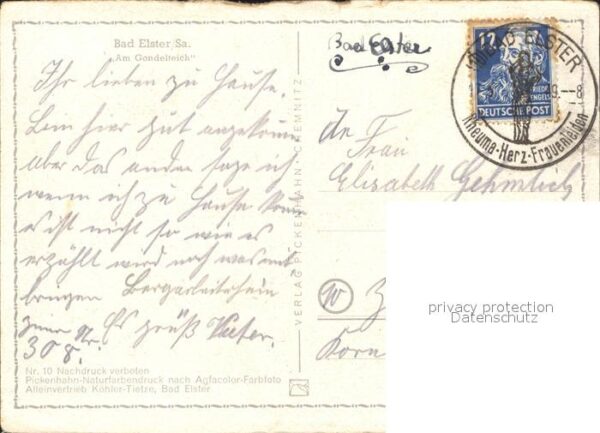 Bad Elster Sa.
"Am Gondelteich"
Ihr lieben zu Hause.
Bin hier gut angekommen
aber das andere sage ich
wenn ich zu Hause komme
es ist nicht so wie es
erzählt wird noch was mit
bringen Bergarbeiterschein
zimer Nr. Es grüß Vater.
308.
Nr. 10 Nachdruck verboten
Pickenhahn-Naturfarbendruck nach Agfacolor-Farbfoto
Alleinvertrieb Köhler-Tietze, Bad Elster
VERLAG PICKENHAHN CHEMNITZ
Bad Elster
12 12
FRIEDR. ENGELS
DEUTSCHE POST
BAD ELSTER
Rheuma-Herz-Frauenleiden
An Frau
Elisabeth Gehmlich
Korn
privacy protection
Datenschutz